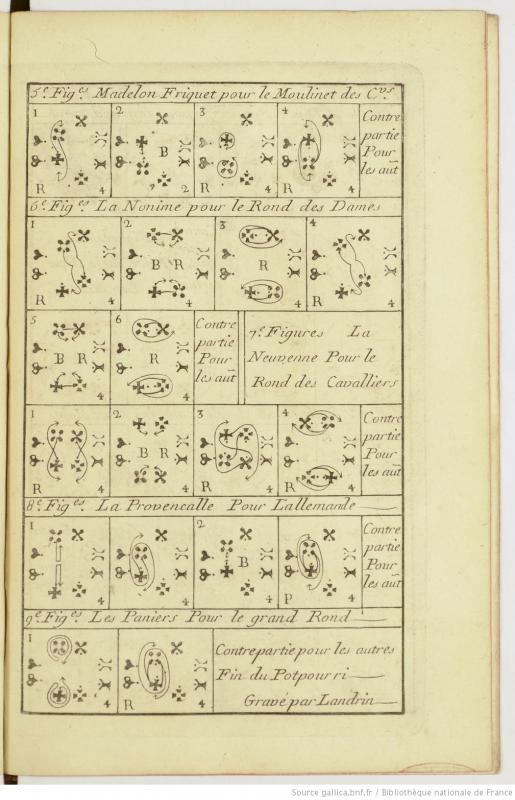 5.e Fig.es Madelon Friquet pour le Moulinet des C.vs.
1 2 3 4 Contre
partie
B Pour
les aut
R 4 2 R 4 R 4
6.e Fig.es La Nonime pour le Rond des Dames
1 2 3 4
B R R
R 4 4 4 R 4
5 6 Contre
partie
B R R Pour
les aut
4 4
7.e Figures La
Neuvenne Pour le
Rond des Cavalliers
1 2 3 4 Contre
partie
B R Pour
les aut
R 4 4 R 4 R 4
8.e Fig.es La Provencalle Pour Lallemande
1 2 Contre
partie
B Pour
les aut
4 4 4 P 4
9.e Fig.es Les Paniers Pour le grand Rond
1
4 R 4
Contrepartie pour les autres
Fin du Potpourri
Gravé par Landrin
Source gallica.bnf.fr / Bibliothèque nationale de France